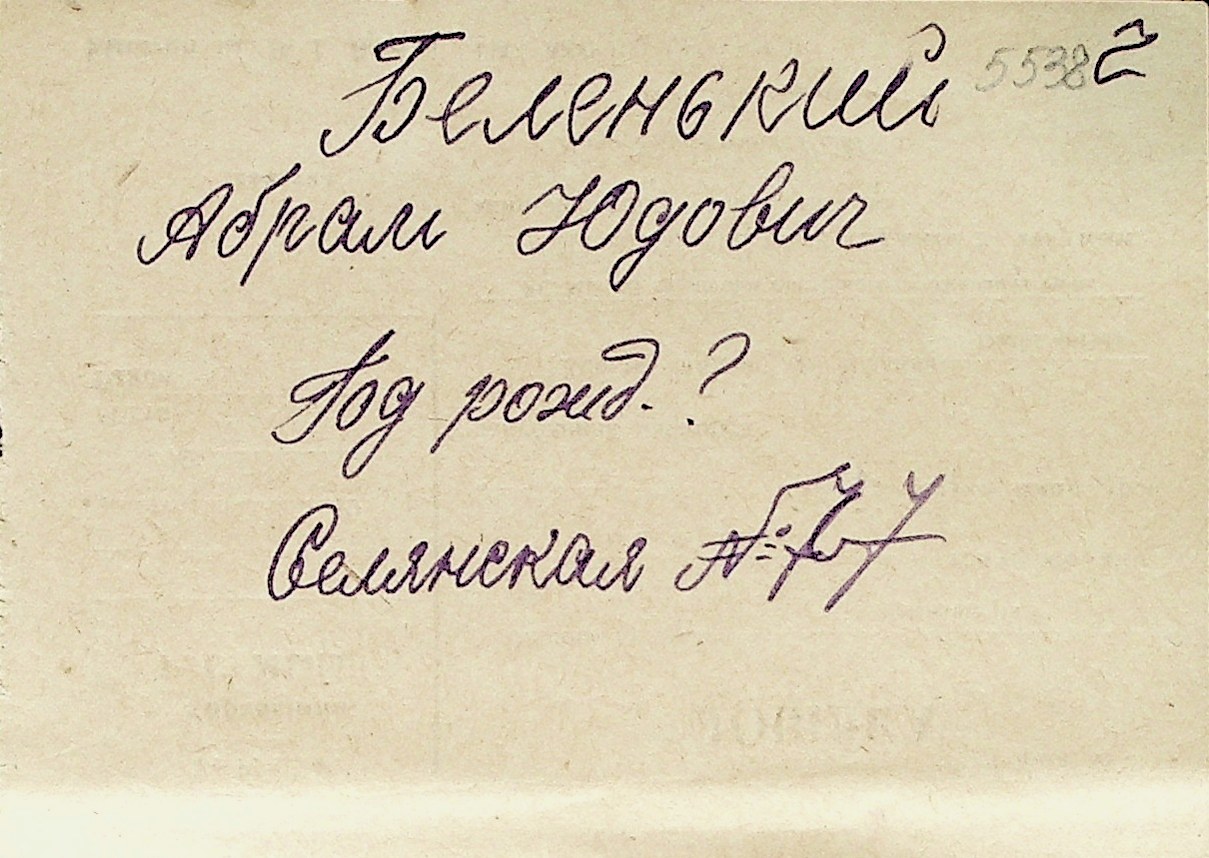 Беленький 5538 2
Абрам Юдович
Год рожд. ?
Селянская № 77